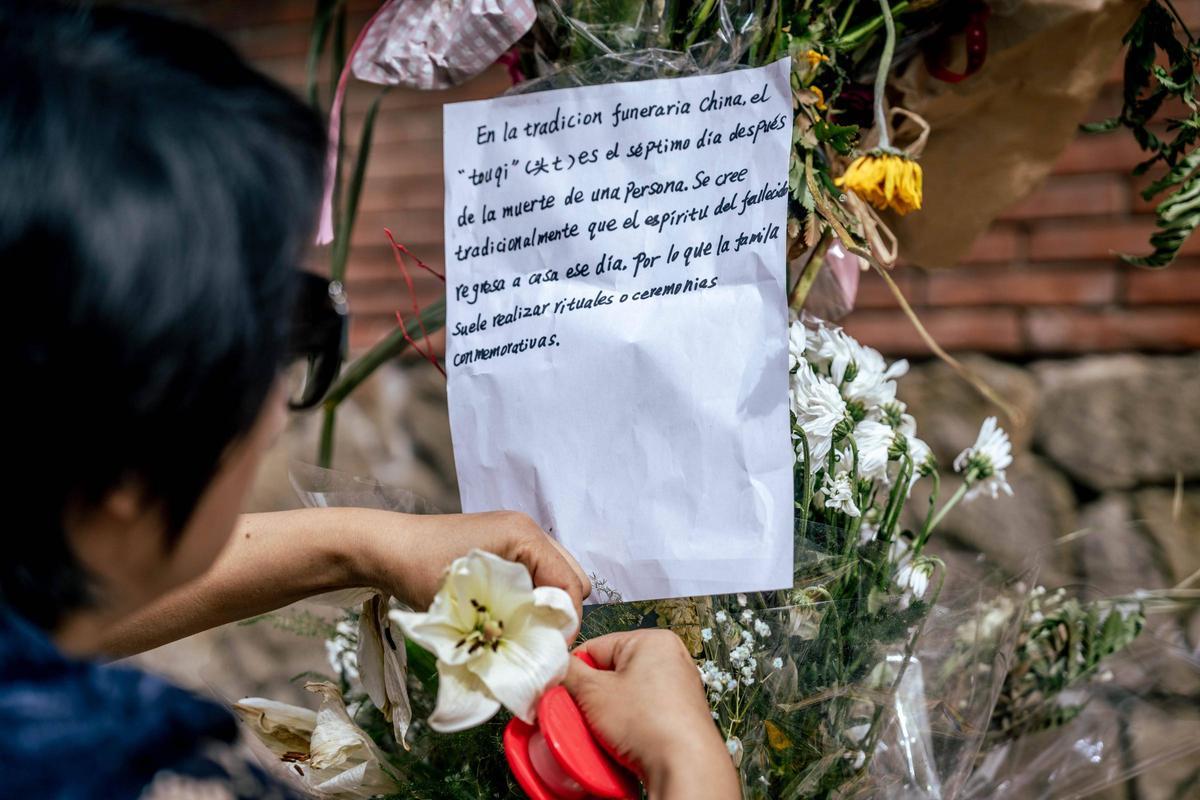 En la tradicion funeraria China, el
"touqi" (头七) es el séptimo día después
de la muerte de una persona. Se cree
tradicionalmente que el espíritu del fallecido
regresa a casa ese día. Por lo que la famila
Suele realizar rituales o ceremonias
conmemorativas.